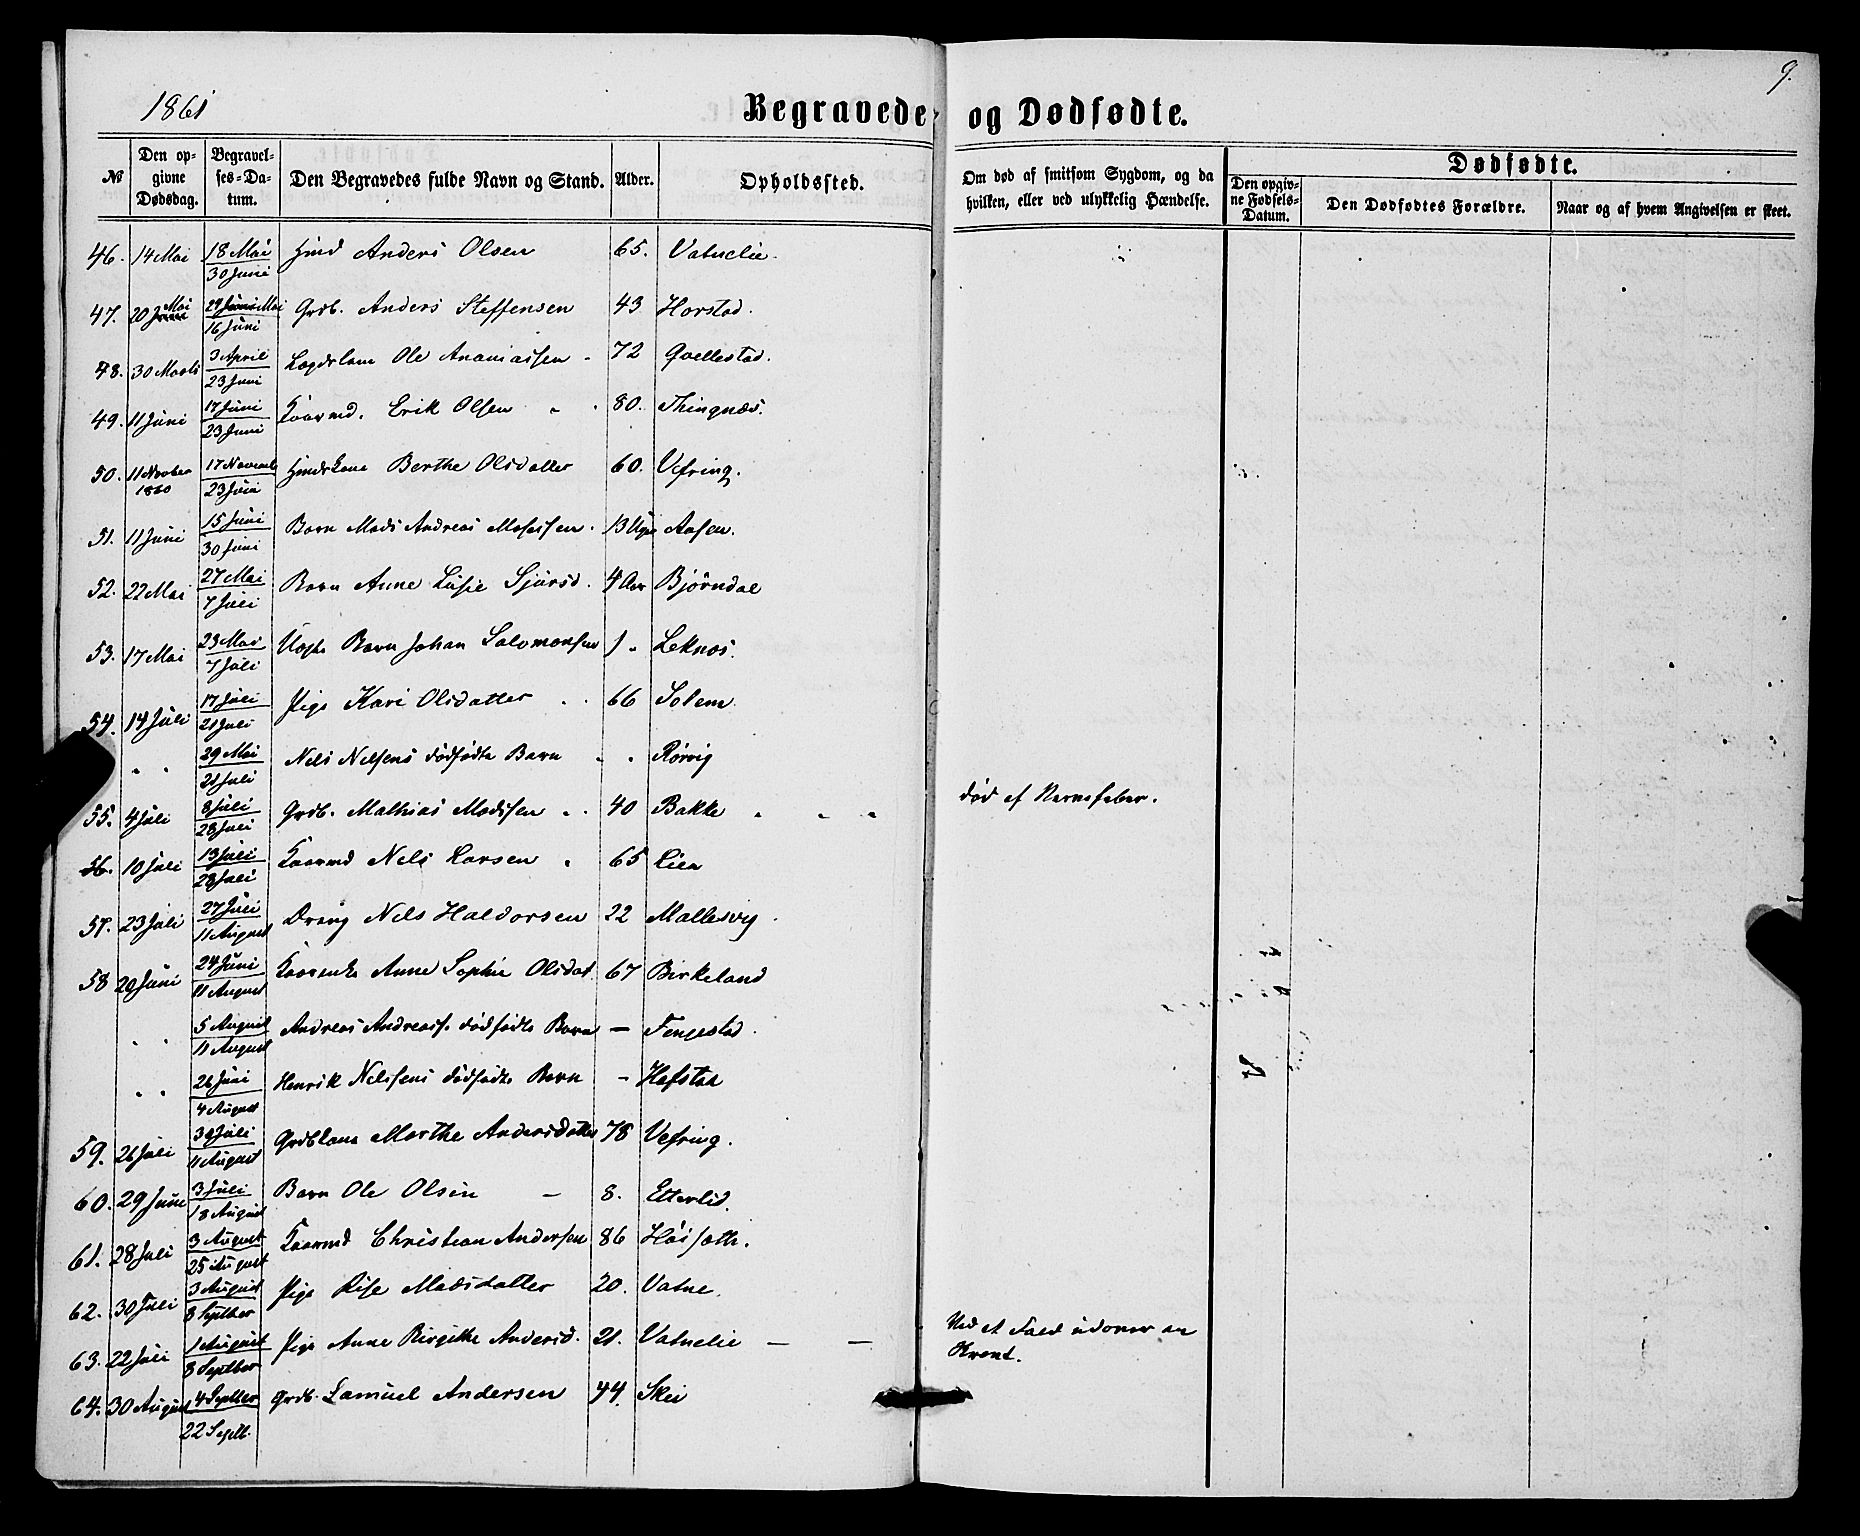 1861
9.
Begravede og Dødfødte.
№
Den op-
givne
Dødsdag.
Begravel-
ses-Da-
tum.
Den Begravedes fulde Navn og Stand.
Alder.
Opholdssted.
Om død af smitsom Sygdom, og da
hvilken, eller ved ulykkelig Hændelse.
Dødfødte.
Den opgiv-
ne Fødsels-
Datum.
Den Dødfødtes Forældre.
Naar og af hvem Angivelsen er skeet.
46. 14 Mai 18 Mai Hmd Anders Olsen 65. Vatnelie.
30 Juni
47. 20 Mai 29 Mai Grdb. Anders Steffensen 43 Horstad.
16 Juni
48. 30 Marts 3 April Lægdslem Ole Ananiassen 72
23 Juni
49. 11 Juni 17 Juni Kaarmd. Erik Olsen 80. Thingnæs.
23 Juni
50. 11 Novber 17 Novemb Hmdskone Berthe Olsdatter 60. Vefring.
1860 23 Juni
51. 11 Juni 15 Juni Barn Mads Andreas Mosessen. 13 Uger Aasen.
30 Juni
52. 22 Mai 27 Mai Barn Anne Lusie Sjursd. 4 Aar Bjørndal
7 Juli
53. 17 Mai 23 Mai Uægte Barn Johan Salomonsen 1 Leknæs.
7 Juli
54. 14 Juli 17 Juli Pige Kari Olsdatter 66 Solem.
21 Juli
" " 29 Mai Nels Nelsens dødfødte Barn " " Rørvig
21 Juli
55. 4 Juli 8 Juli Grdb. Mathias Madssen 40 Bakke " " " død af Nervefeber.
28 Juli
56. 10 Juli 13 Juli Kaarmd Nels Larsen 65 Lien
28 Juli
57. 23 Juli 27 Juli Dreng Nels Haldorsen 22 Mallesvig.
11 August
58 20 Juni 24 Juni Kaarenke Anne Sophie Olsdat. 67 Birkeland
11 August
" " 5 August Andreas Andreass. dødfødte Barn — Fengestad.
11 August
" " 26 Juni Henrik Nelssens dødfødte Barn — Hafstad
4 August
59. 26 Juli 30 Juli Grdbkone Marthe Andersdatter 78 Vefring.
11 August
60. 29 Juni 3 Juli Barn Ole Olsen — 8. Etterlid.
18 August
61. 28 Juli 3 August Kaarmd Christian Andersen 86
25 August
62. 30 Juli 3 August Pige Madsdatter 20. Vatne.
8 Septber
63. 22 Juli 1 August Pige Anne Birgithe Andersd. 21. Vatnelie — — Ved et Fald udover en
8 Septber
64. 30 August 4 Septber Grdb. Samuel Andersen 44. Skei
22 Septb.